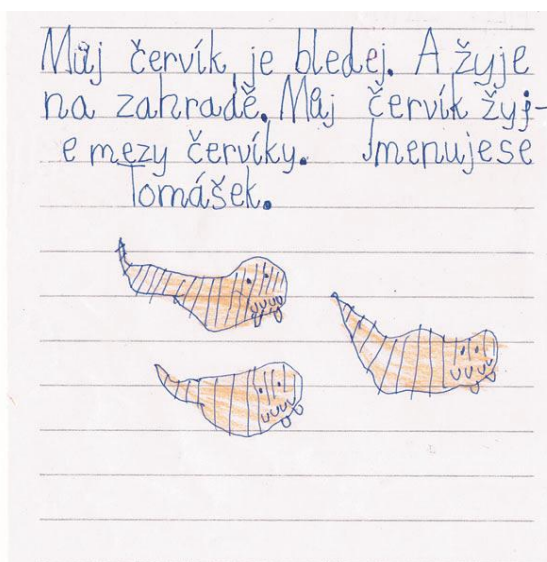 Můj červík je bledej. A žyje
na zahradě. Můj červík žyj-
e mezy červíky. Jmenujese
Tomášek.